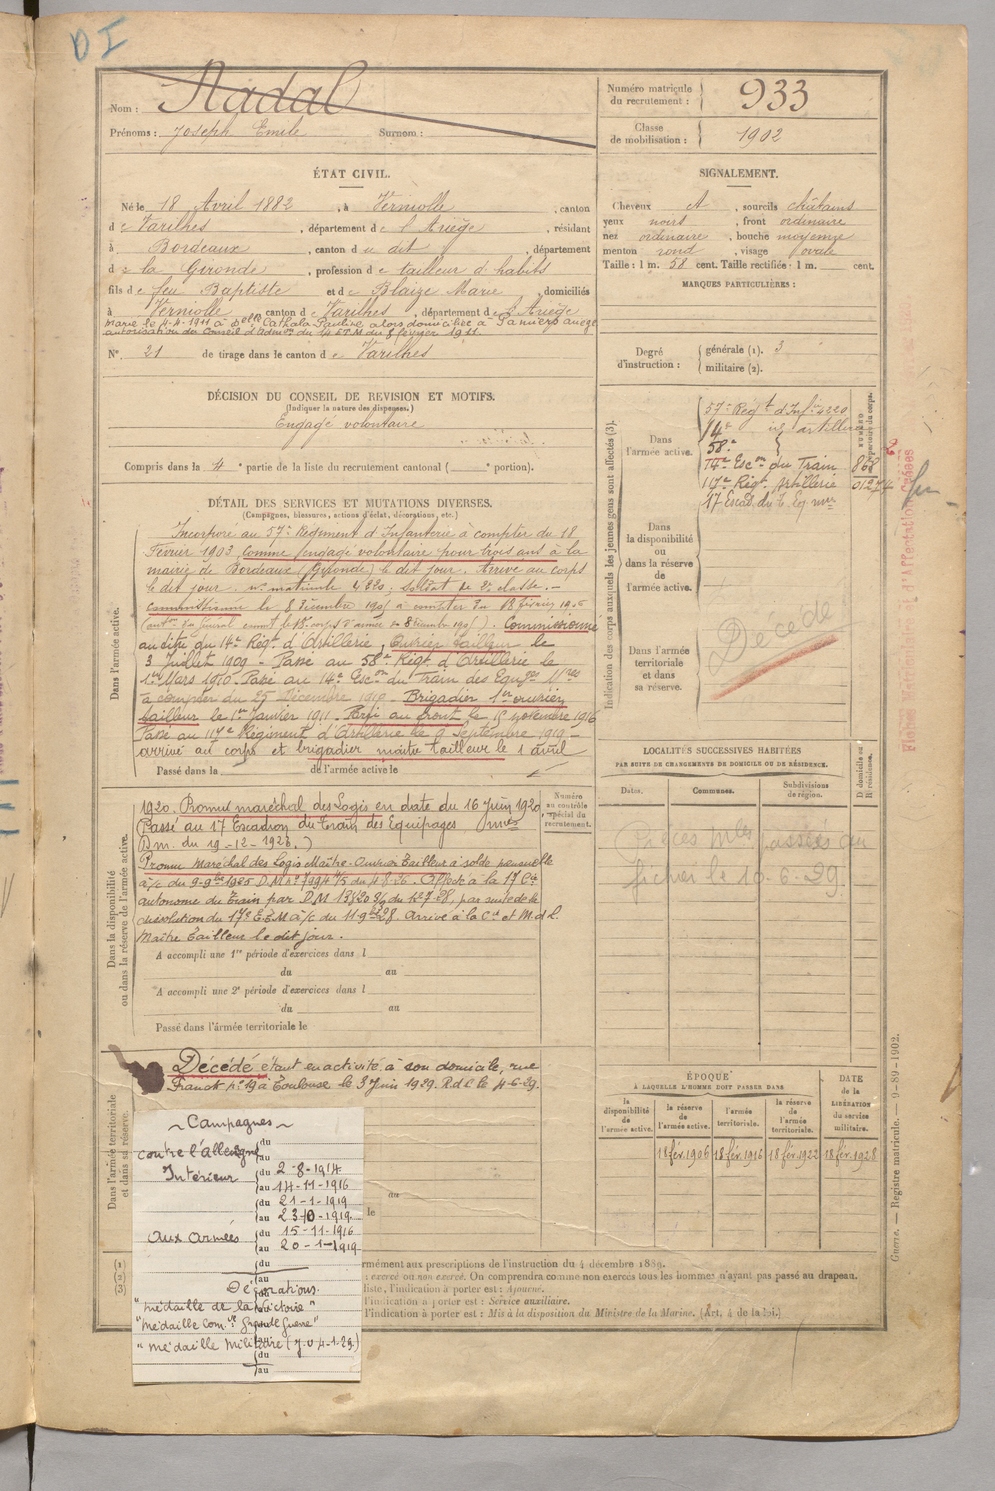 DI
Nom : Nadal
Prénoms : Joseph Emile Surnom :
Numéro matricule du recrutement : 933
Classe de mobilisation : 1902
ÉTAT CIVIL.
Né le 18 Avril 1882, à Verniolle, canton
de Varilhes, département de l'Ariège, résidant
à Bordeaux, canton du dit, département
de la Gironde, profession de tailleur d'habits
fils de feu Baptiste et de Blaize Marie, domiciliés
à Verniolle, canton de Varilhes, département de l'Ariège
Marié le 4-4-1911 à Delle Cathala Pauline alors domiciliée à Pamiers Ariège
autorisation du Conseil d'Admon du 14 E T M du 8 février 1911.
N° 21 de tirage dans le canton de Varilhes
SIGNALEMENT.
Cheveux et, sourcils châtains
yeux noirs, front ordinaire
nez ordinaire, bouche moyenne
menton rond, visage ovale
Taille : 1 m. 58 cent. Taille rectifiée : 1 m. cent.
MARQUES PARTICULIÈRES :
Degré d'instruction : générale (1). 3
militaire (2).
DÉCISION DU CONSEIL DE REVISION ET MOTIFS.
(Indiquer la nature des dispenses.)
Engagé volontaire
Compris dans la 4e partie de la liste du recrutement cantonal ( e portion).
DÉTAIL DES SERVICES ET MUTATIONS DIVERSES.
(Campagnes, blessures, actions d'éclat, décorations, etc.)
Dans l'armée active.
Incorporé au 57e Régiment d'Infanterie à compter du 18
Février 1903, comme engagé volontaire pour trois ans à la
mairie de Bordeaux (Gironde) le dit jour. Arrivé au corps
le dit jour. no matricule 4220. soldat de 2e classe. —
commissionné le 8 décembre 1905 à compter du 18 février 1906
Commissionné
au dite du 14e Régt d'Artillerie, Ouvrier tailleur le
3 Juillet 1909 - Passé au 58e Régt d'Artillerie le
1er Mars 1910 - Passé au 14e Escon du Train des Equges Mres
à compter du 25 Décembre 1910 - Brigadier 1er ouvrier
tailleur le 1er Janvier 1911. Parti au front le 15 novembre 1916
Passé au 117e Régiment d'Artillerie le 9 Septembre 1919 —
arrivé au corps et brigadier maître tailleur le 1 avril
Passé dans la de l'armée active le
Dans la disponibilité ou dans la réserve de l'armée active.
1920. Promu maréchal des Logis en date du 16 Juin 1920
Passé au 17 Escadron du train des Equipages
D.m. du 19-12-1923.)
Promu Maréchal des Logis Maître-Ouvrier Tailleur à solde mensuelle
à/c du 9-9bre 1925 Affecté à la 17 Cie
autonome du Train par D.M. du par suite de la
dissolution du 17e E.T.M à/c du Arrivé à la Cie et M.d.L.
Maître tailleur le dit jour.
Numéro au contrôle spécial du recrutement.
A accompli une 1re période d'exercices dans l
du au
A accompli une 2e période d'exercices dans l
du au
Passé dans l'armée territoriale le
Dans l'armée territoriale et dans sa réserve.
Décédé étant en activité à son domicile, rue
Franck no 19 à Toulouse le 3 Juin 1929. R.d.C. le 4-6-29.
~ Campagnes ~
contre l'Allemagne du
au
Intérieur du 2-8-1914
au 14-11-1916
du 21-1-1919
au 23-10-1919
Aux Armées du 15-11-1916
au 20-1-1919
Décorations.
"médaille de la Victoire"
"médaille Com.ve Grande Guerre"
"médaille Militaire (J.O. 4-1-29.)
du
au
au
le
Indication des corps auxquels les jeunes gens sont affectés (3).
Dans l'armée active.
57e Régt d'Infie 4220
14e id artillerie
58e
14e Escon du Train 868
117e Régt Artillerie 01274
17 Escad. du T. Eq. mre
Dans la disponibilité ou dans la réserve de l'armée active.
Dans l'armée territoriale et dans sa réserve.
Décédé
LOCALITÉS SUCCESSIVES HABITÉES
PAR SUITE DE CHANGEMENTS DE DOMICILE OU DE RÉSIDENCE.
Dates. Communes. Subdivisions de région. D. domicile ou R. résidence.
Pièces mles passées au
fichier le 10-6-29.
ÉPOQUE
À LAQUELLE L'HOMME DOIT PASSER DANS
la disponibilité de l'armée active. la réserve de l'armée active. l'armée territoriale. la réserve de l'armée territoriale.
DATE de la LIBÉRATION du service militaire.
18 fév. 1906 18 fév. 1916 18 fév. 1922 18 fév. 1928
(1)
(2)
(3)
rmément aux prescriptions de l'instruction du 4 décembre 1889.
: exercé ou non exercé. On comprendra comme non exercés tous les hommes n'ayant pas passé au drapeau.
liste, l'indication à porter est : Ajourné.
l'indication à porter est : Service auxiliaire.
l'indication à porter est : Mis à la disposition du Ministre de la Marine. (Art. 4 de la loi.)
Guerre. — Registre matricule. — 9-89-1902.